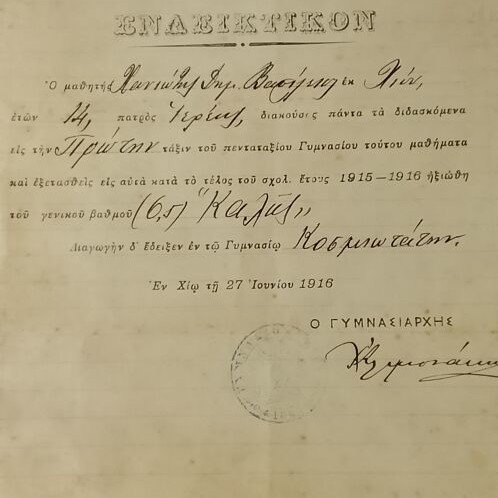 ΕΝΔΕΙΚΤΙΚΟΝ
Ὁ μαθητὴς Δημ. ἐκ Χίου,
ἐτῶν 14, πατρὸς Ἱερέως, διακούσας πάντα τὰ διδασκόμενα
εἰς τὴν Πρώτην τάξιν τοῦ πενταταξίου Γυμνασίου τούτου μαθήματα
καὶ ἐξετασθεὶς εἰς αὐτὰ κατὰ τὸ τέλος τοῦ σχολ. ἔτους 1915—1916 ἠξιώθη
τοῦ γενικοῦ βαθμοῦ (6,5) "Καλῶς„
Διαγωγὴν δ' ἔδειξεν ἐν τῷ Γυμνασίῳ Κοσμιωτάτην.
Ἐν Χίῳ τῇ 27 Ἰουνίου 1916
Ο ΓΥΜΝΑΣΙΑΡΧΗΣ